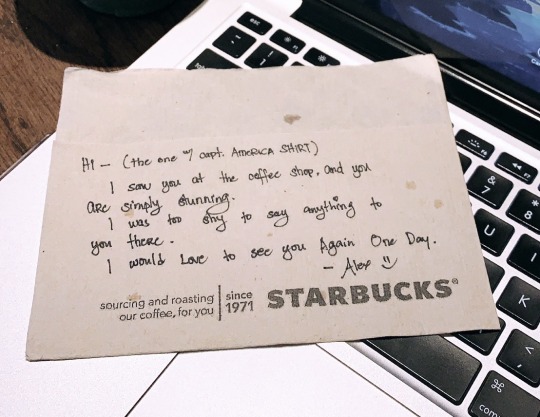 Hi — (the one w/ capt. AMERICA SHIRT)
I saw you at the coffee shop, and you
are simply stunning.
I was too shy to say anything to
you there.
I would Love to see you Again One Day.
— Alex :)
sourcing and roasting
our coffee, for you
since
1971
STARBUCKS®
esc
&
7
*
8
U
I
K
⌘